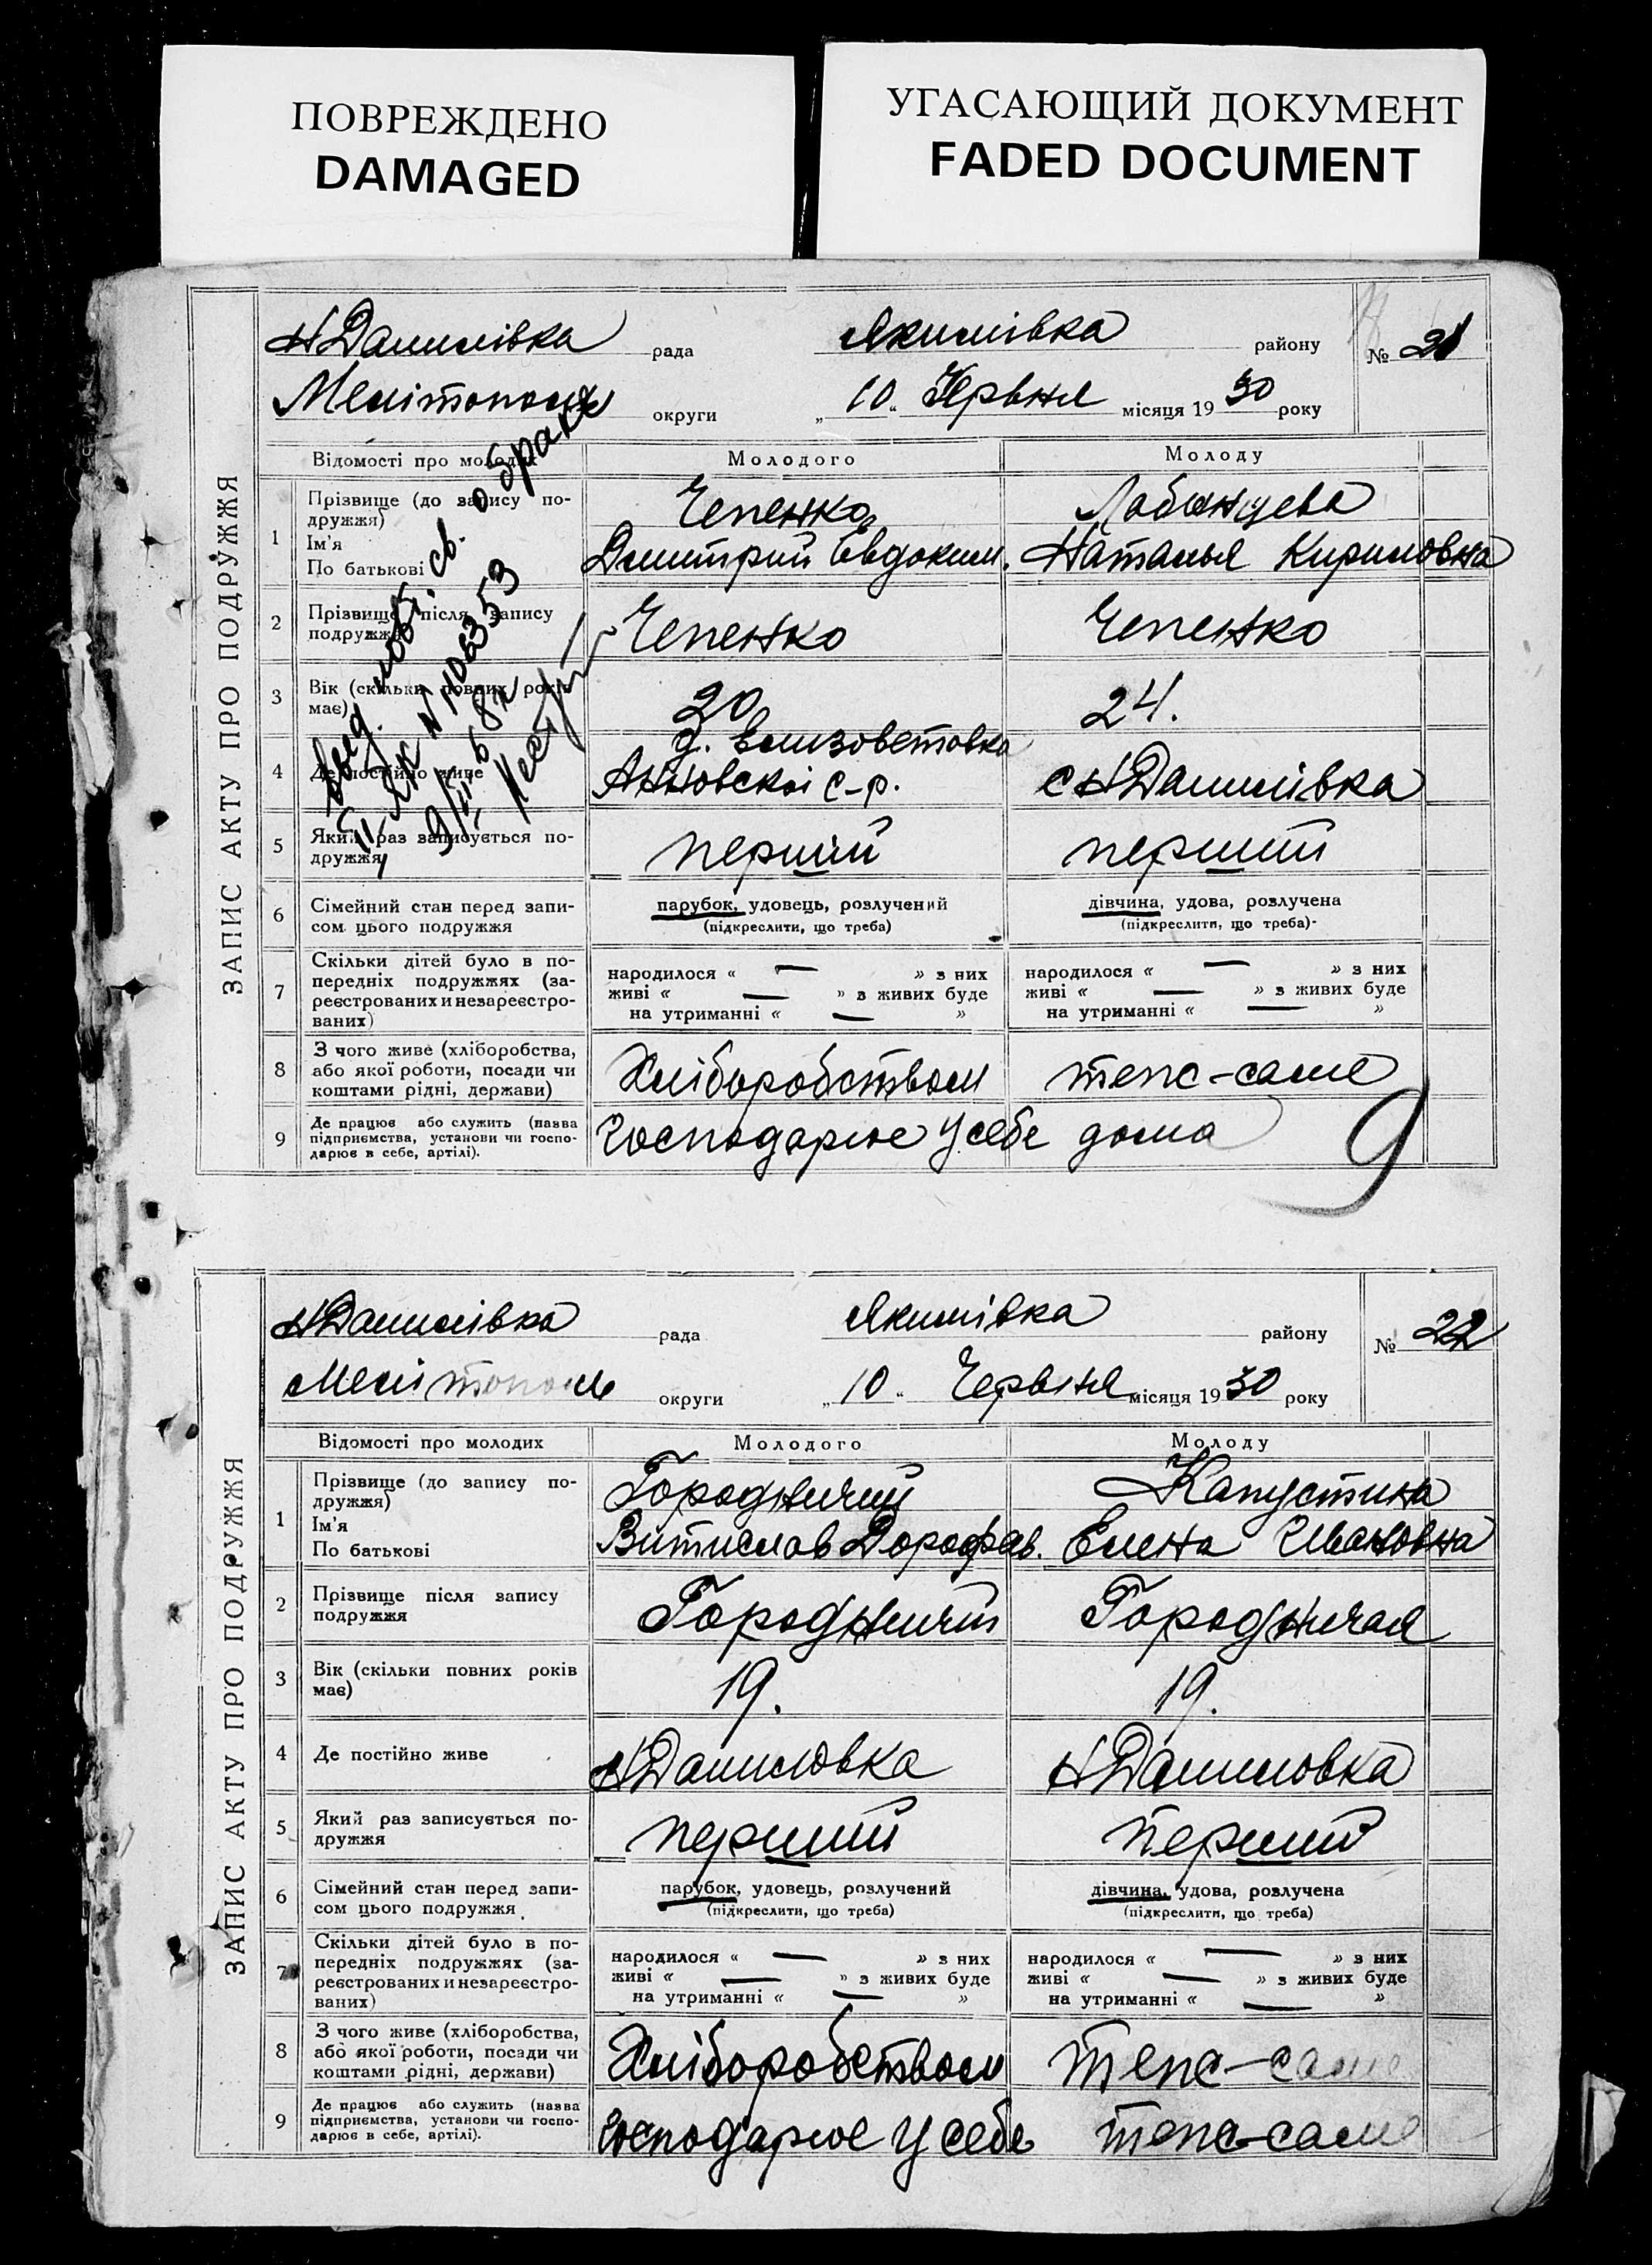 ПОВРЕЖДЕНО
DAMAGED
УГАСАЮЩИЙ ДОКУМЕНТ
FADED DOCUMENT
ЗАПИС АКТУ ПРО ПОДРУЖЖЯ
НДанилівка рада Якимівка району № 21
Мелітополь округи „ 10 „ Червня місяця 19 30 року
Відомості про молодих Молодого Молоду
1 Прізвище (до запису по-
дружжя)
Ім'я
По батькові
Чепенко
Дмитрий Евдоким.
Лабынцева
Наталья Кириловна
2 Прізвище після запису
подружжя
Чепенко Чепенко
3 Вік (скільки повних років
має)
20 24.
4 Де постійно живе
д. Елизоветовка
Анновскої с-р.
с НДанилівка
5 Який раз записується по-
дружжя
перший перший
6 Сімейний стан перед запи-
сом цього подружжя
парубок, удовець, розлучений
(підкреслити, що треба)
дівчина, удова, розлучена
(підкреслити, що треба)
7 Скільки дітей було в по-
передніх подружжях (за-
реєстрованих и незареєстро-
ваних)
народилося « — » з них
живі « — » з живих буде
на утриманні « — »
народилося « — » з них
живі « — » з живих буде
на утриманні « — »
8 З чого живе (хліборобства,
або якої роботи, посади чи
коштами рідні, держави)
Хліборобством тепс-саме
9 Де працює або служить (назва
підприємства, установи чи госпо-
дарює в себе, артілі).
Господарює у себе дома
9
св. о браке
№ 106353
68г
ЗАПИС АКТУ ПРО ПОДРУЖЖЯ
НДанилівка рада Якимівка району № 22
Мелітополь округи „ 10 „ Червня місяця 19 30 року
Відомості про молодих Молодого Молоду
1 Прізвище (до запису по-
дружжя)
Ім'я
По батькові
Городничий
Витислав Дорофев.
Капустина
Елена Ивановна
2 Прізвище після запису
подружжя
Городничий Городничая
3 Вік (скільки повних років
має)
19. 19.
4 Де постійно живе
НДаниловка НДаниловка
5 Який раз записується по-
дружжя
перший перший
6 Сімейний стан перед запи-
сом цього подружжя
парубок, удовець, розлучений
(підкреслити, що треба)
дівчина, удова, розлучена
(підкреслити, що треба)
7 Скільки дітей було в по-
передніх подружжях (за-
реєстрованих и незареєстро-
ваних)
народилося « — » з них
живі « — » з живих буде
на утриманні « — »
народилося « — » з них
живі « — » з живих буде
на утриманні « — »
8 З чого живе (хліборобства,
або якої роботи, посади чи
коштами рідні, держави)
Хліборобством тепс-саме
9 Де працює або служить (назва
підприємства, установи чи госпо-
дарює в себе, артілі).
Господарює у себе тепс-саме